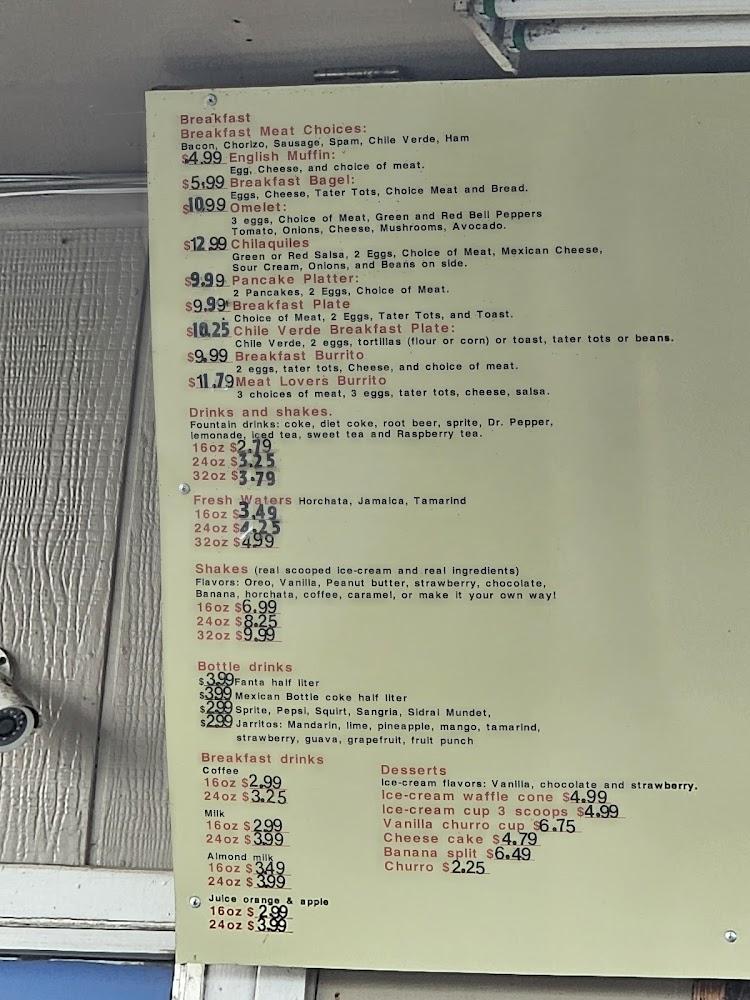 Breakfast
Breakfast Meat Choices:
Bacon, Chorizo, Sausage, Spam, Chile Verde, Ham
$4.99 English Muffin:
Egg, Cheese, and choice of meat.
$5.99 Breakfast Bagel:
Eggs, Cheese, Tater Tots, Choice Meat and Bread.
$10.99 Omelet:
3 eggs, Choice of Meat, Green and Red Bell Peppers
Tomato, Onions, Cheese, Mushrooms, Avocado.
$12.99 Chilaquiles
Green or Red Salsa, 2 Eggs, Choice of Meat, Mexican Cheese,
Sour Cream, Onions, and Beans on side.
$9.99 Pancake Platter:
2 Pancakes, 2 Eggs, Choice of Meat.
$9.99 Breakfast Plate
Choice of Meat, 2 Eggs, Tater Tots, and Toast.
$10.25 Chile Verde Breakfast Plate:
Chile Verde, 2 eggs, tortillas (flour or corn) or toast, tater tots or beans.
$9.99 Breakfast Burrito
2 eggs, tater tots, Cheese, and choice of meat.
$11.79 Meat Lovers Burrito
3 choices of meat, 3 eggs, tater tots, cheese, salsa.
Drinks and shakes.
Fountain drinks: coke, diet coke, root beer, sprite, Dr. Pepper,
lemonade, iced tea, sweet tea and Raspberry tea.
16oz $2.79
24oz $3.25
32oz $3.79
Fresh Waters Horchata, Jamaica, Tamarind
16oz $3.49
24oz $4.25
32oz $4.99
Shakes (real scooped ice-cream and real ingredients)
Flavors: Oreo, Vanilla, Peanut butter, strawberry, chocolate,
Banana, horchata, coffee, caramel, or make it your own way!
16oz $6.99
24oz $8.25
32oz $9.99
Bottle drinks
$3.99 Fanta half liter
$3.99 Mexican Bottle coke half liter
$2.99 Sprite, Pepsi, Squirt, Sangria, Sidral Mundet,
$2.99 Jarritos: Mandarin, lime, pineapple, mango, tamarind,
strawberry, guava, grapefruit, fruit punch
Breakfast drinks
Coffee
16oz $2.99
24oz $3.25
Milk
16oz $2.99
24oz $3.99
Almond milk
16oz $3.49
24oz $3.99
Juice orange & apple
16oz $2.99
24oz $3.99
Desserts
Ice-cream flavors: Vanilla, chocolate and strawberry.
Ice-cream waffle cone $4.99
Ice-cream cup 3 scoops $4.99
Vanilla churro cup $6.75
Cheese cake $4.79
Banana split $6.49
Churro $2.25